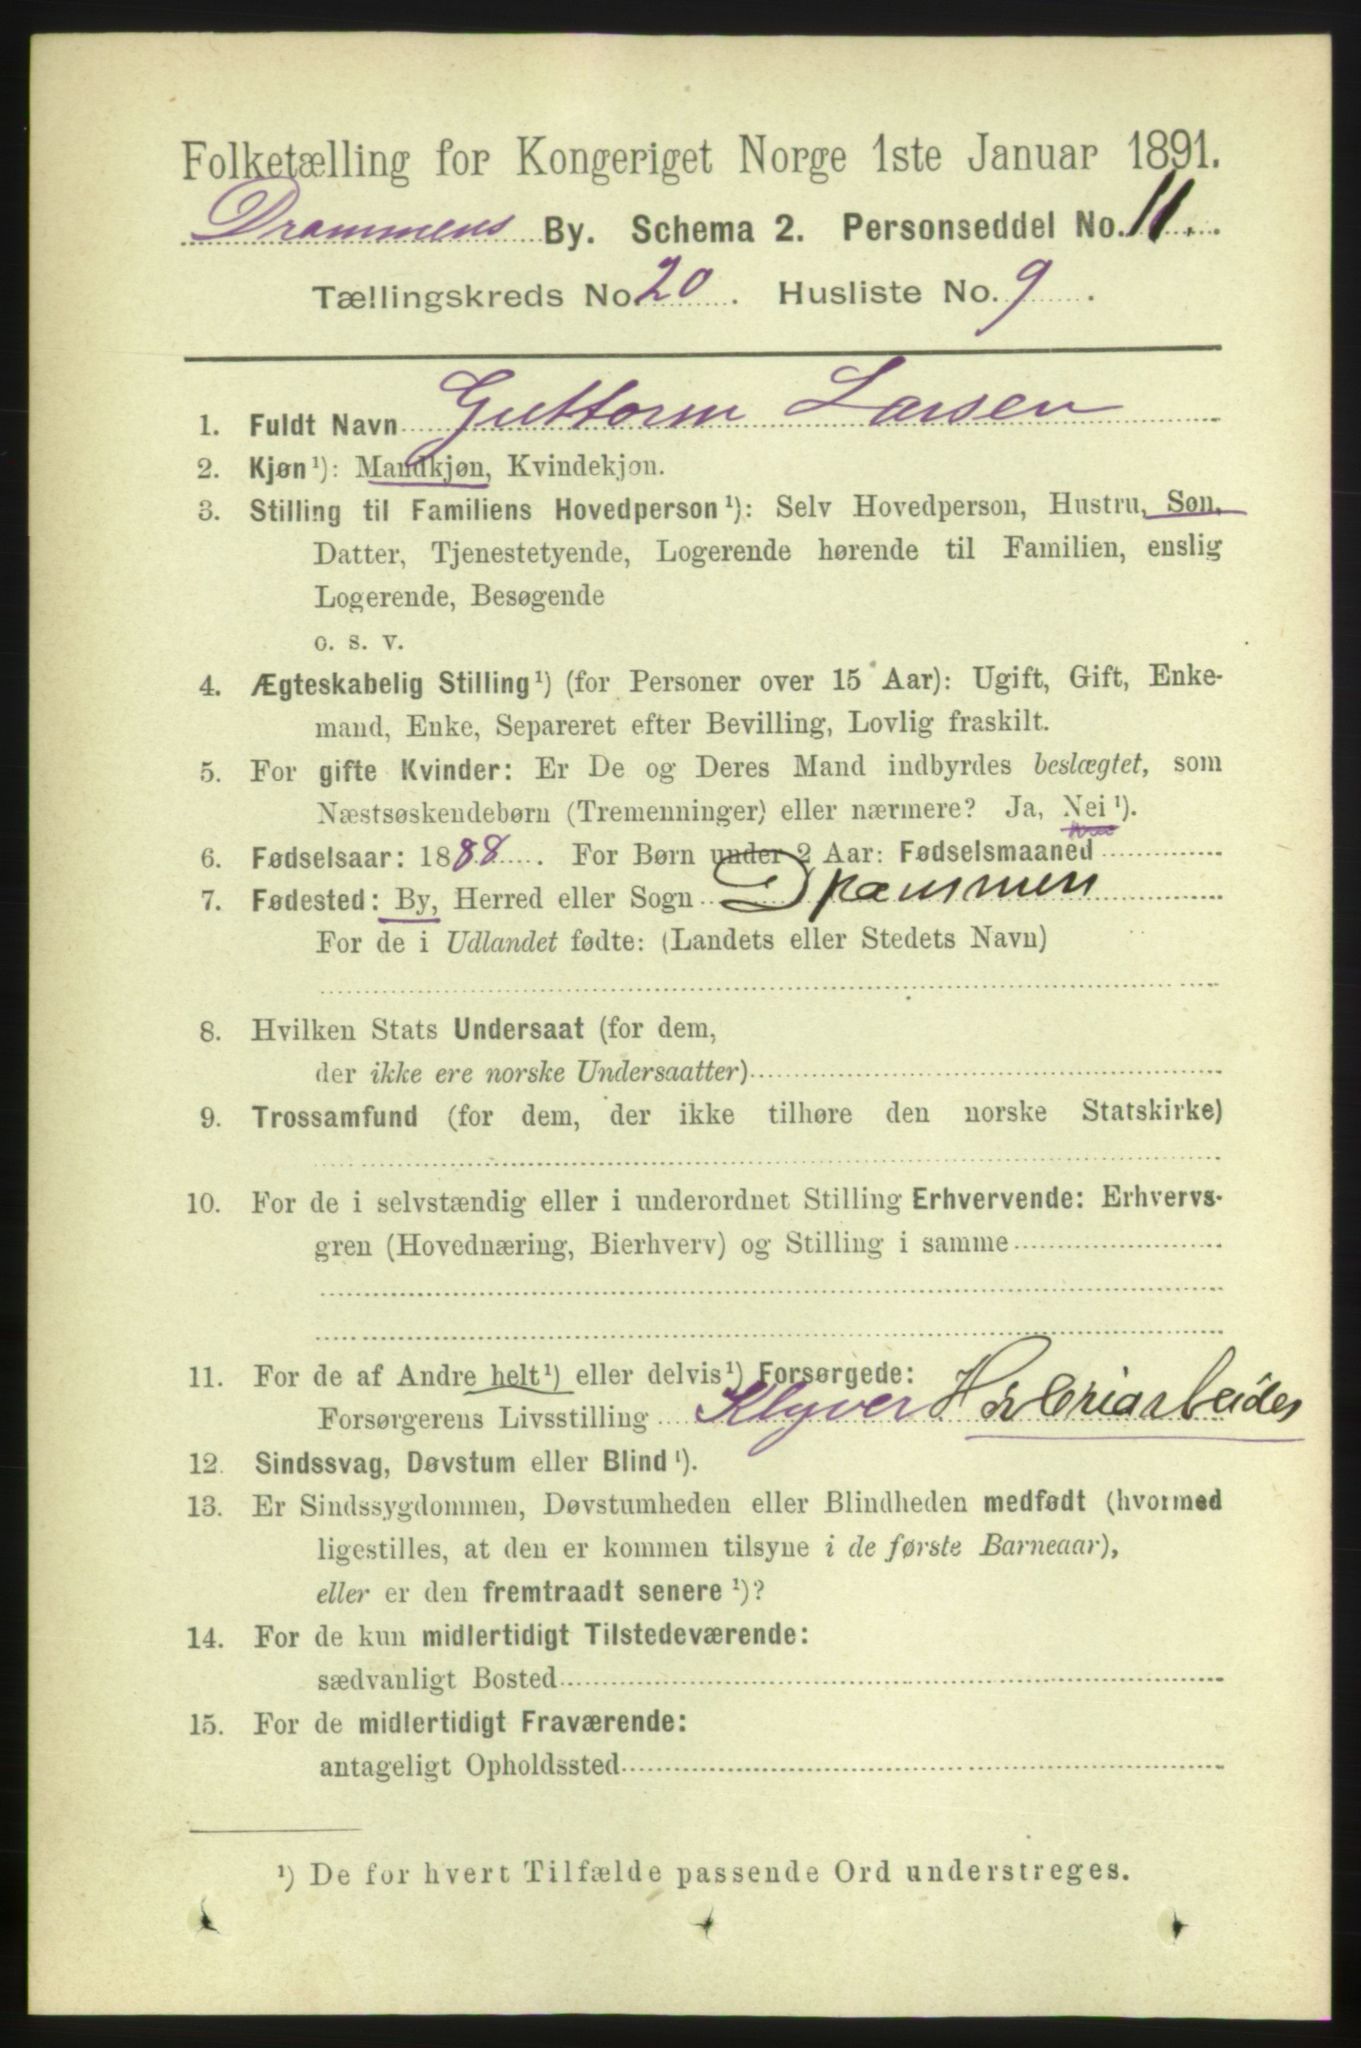 Folketælling for Kongeriget Norge 1ste Januar 1891.
Drammens By. Schema 2. Personseddel No. 11.
Tællingskreds No. 20. Husliste No. 9.
1. Fuldt Navn Guttorm Larsen
2. Kjøn¹): Mandkjøn, Kvindekjøn.
3. Stilling til Familiens Hovedperson¹): Selv Hovedperson, Hustru, Søn,
Datter, Tjenestetyende, Logerende hørende til Familien, enslig
Logerende, Besøgende
o. s. v.
4. Ægteskabelig Stilling¹) (for Personer over 15 Aar): Ugift, Gift, Enke-
mand, Enke, Separeret efter Bevilling, Lovlig fraskilt.
5. For gifte Kvinder: Er De og Deres Mand indbyrdes beslægtet, som
Næstsøskendebørn (Tremenninger) eller nærmere? Ja, Nei¹).
6. Fødselsaar: 1888. For Børn under 2 Aar: Fødselsmaaned
7. Fødested: By, Herred eller Sogn Drammen
For de i Udlandet fødte: (Landets eller Stedets Navn)
8. Hvilken Stats Undersaat (for dem,
der ikke ere norske Undersaatter)
9. Trossamfund (for dem, der ikke tilhøre den norske Statskirke)
10. For de i selvstændig eller i underordnet Stilling Erhvervende: Erhvervs-
gren (Hovednæring, Bierhverv) og Stilling i samme
11. For de af Andre helt¹) eller delvis¹) Forsørgede:
Forsørgerens Livsstilling Klyver Høvleriarbeider
12. Sindssvag, Døvstum eller Blind¹).
13. Er Sindssygdommen, Døvstumheden eller Blindheden medfødt (hvormed
ligestilles, at den er kommen tilsyne i de første Barneaar),
eller er den fremtraadt senere¹)?
14. For de kun midlertidigt Tilstedeværende:
sædvanligt Bosted
15. For de midlertidigt Fraværende:
antageligt Opholdssted
¹) De for hvert Tilfælde passende Ord understreges.